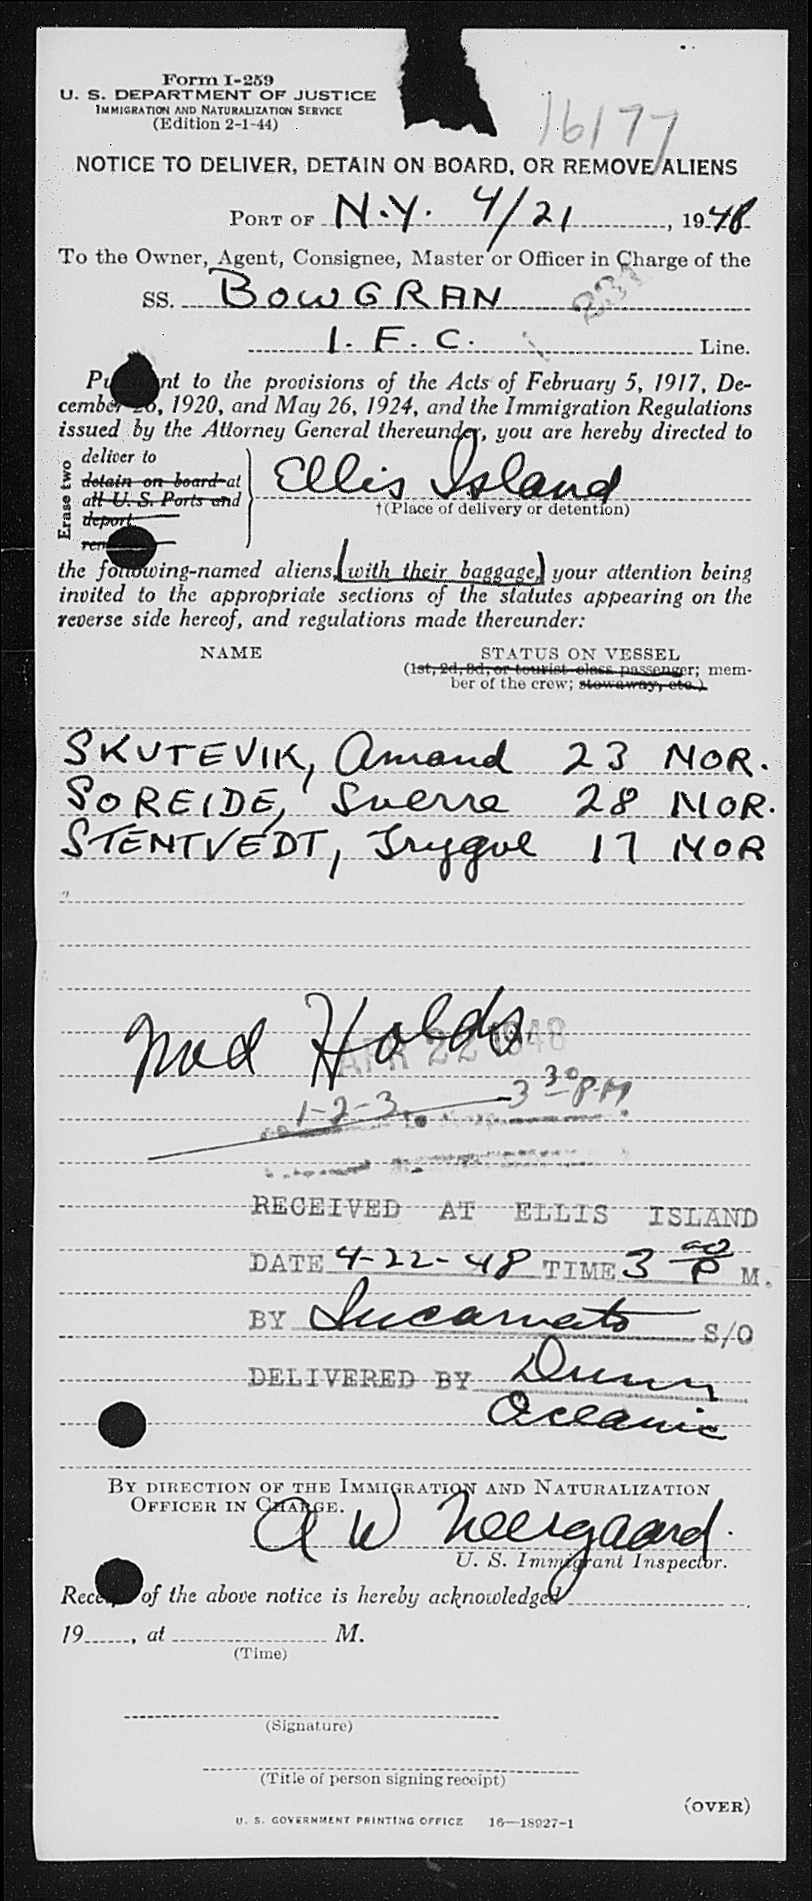 Form I-259
U. S. DEPARTMENT OF JUSTICE
IMMIGRATION AND NATURALIZATION SERVICE
(Edition 2-1-44)
16177
NOTICE TO DELIVER, DETAIN ON BOARD, OR REMOVE ALIENS
PORT OF N.Y. 4/21, 1948
To the Owner, Agent, Consignee, Master or Officer in Charge of the
SS. BOWGRAN
I. F. C. Line.
nt to the provisions of the Acts of February 5, 1917, De-
cember 26, 1920, and May 26, 1924, and the Immigration Regulations
issued by the Attorney General thereunder, you are hereby directed to
Erase two
deliver to
detain on board at
all U. S. Ports and
deport
Ellis Island
†(Place of delivery or detention)
the following-named aliens, (with their baggage,) your attention being
invited to the appropriate sections of the statutes appearing on the
reverse side hereof, and regulations made thereunder:
NAME STATUS ON VESSEL
(1st, 2d, 3d, or tourist class passenger; mem-
ber of the crew; stowaway, etc.)
SKUTEVIK, Amand 23 NOR.
SOREIDE, Sverre 28 NOR.
STENTVEDT, Trygve 17 NOR
Med Holds
APR 22 1948
1-2-3 3 30 P.M
RECEIVED AT ELLIS ISLAND
DATE 4-22-48 TIME 3 00 P M.
BY Incarnato S/O
DELIVERED BY Dunn
Oceanic
BY DIRECTION OF THE IMMIGRATION AND NATURALIZATION
OFFICER IN CHARGE.
A W Neergaard.
U. S. Immigrant Inspector.
Receipt of the above notice is hereby acknowledged
19, at M.
(Time)
(Signature)
(Title of person signing receipt)
(OVER)
U. S. GOVERNMENT PRINTING OFFICE 16—18927-1